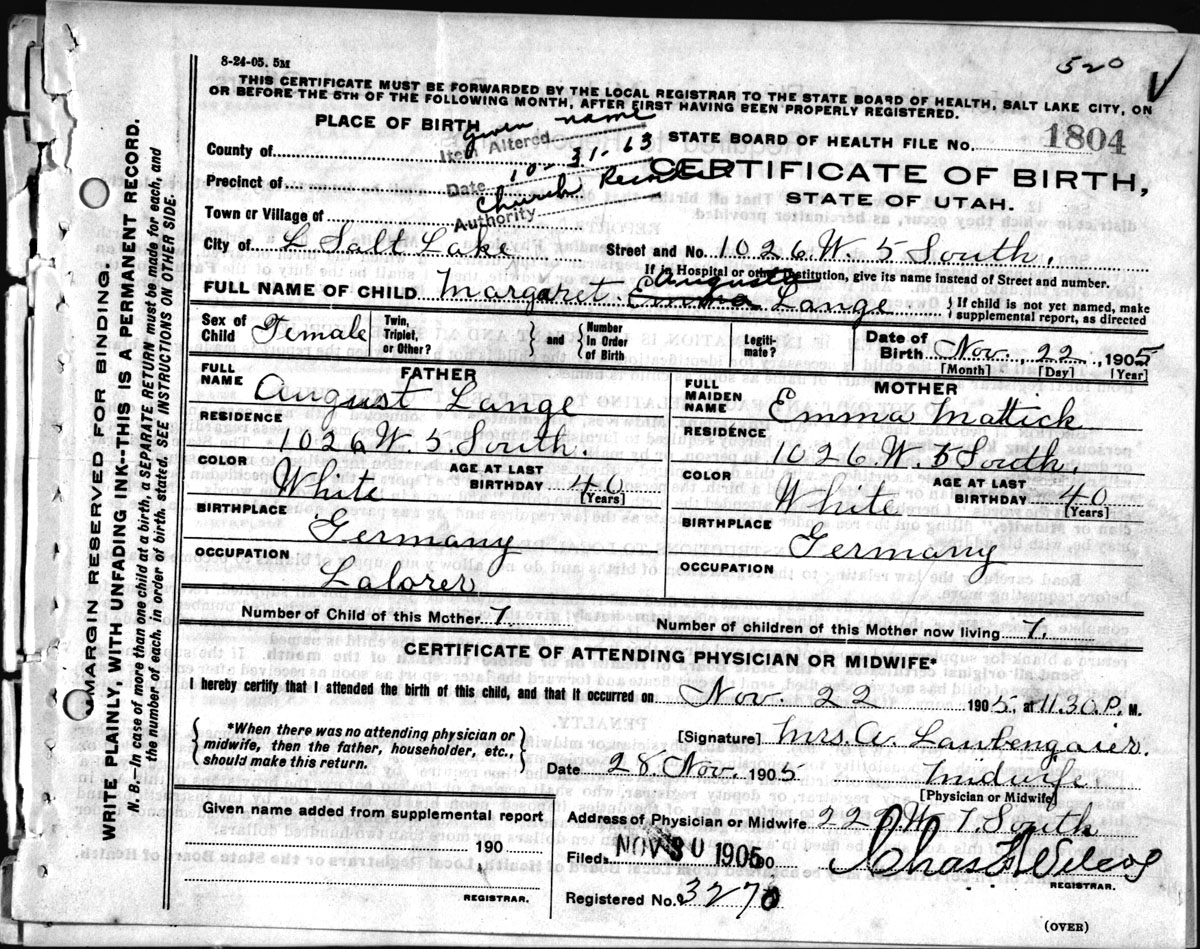 8-24-05. 5M
520
THIS CERTIFICATE MUST BE FORWARDED BY THE LOCAL REGISTRAR TO THE STATE BOARD OF HEALTH, SALT LAKE CITY, ON
OR BEFORE THE 5TH OF THE FOLLOWING MONTH, AFTER FIRST HAVING BEEN PROPERLY REGISTERED.
PLACE OF BIRTH
given name
Item Altered
STATE BOARD OF HEALTH FILE No. 1804
County of
10-31-63
Date
CERTIFICATE OF BIRTH,
Precinct of
Church Records
STATE OF UTAH.
Town or Village of
Authority
City of Salt Lake Street and No 1026 W. 5 South,
If in Hospital or other Institution, give its name instead of Street and number.
Augusta
FULL NAME OF CHILD Margaret Emma Lange { If child is not yet named, make supplemental report, as directed
Sex of Child Female Twin, Triplet, or Other? and { Number in Order of Birth Legiti- mate? Date of Birth Nov. 22, 1905
[Month] [Day] [Year]
FATHER
FULL NAME August Lange
RESIDENCE
1026 W. 5 South.
COLOR White AGE AT LAST BIRTHDAY 40
[Years]
BIRTHPLACE
Germany
OCCUPATION
Laborer
MOTHER
FULL MAIDEN NAME Emma Mattick
RESIDENCE
1026. W. 5 South,
COLOR White AGE AT LAST BIRTHDAY 40
[Years]
BIRTHPLACE
Germany
OCCUPATION
Number of Child of this Mother 7. Number of children of this Mother now living 7.
CERTIFICATE OF ATTENDING PHYSICIAN OR MIDWIFE*
I hereby certify that I attended the birth of this child, and that it occurred on Nov. 22 1905, at 11.30.P. M.
{ *When there was no attending physician or
midwife, then the father, householder, etc.,
should make this return. }
[Signature] Mrs. A. Laubengaier.
Date 28. Nov. 1905 Midwife
[Physician or Midwife]
Address of Physician or Midwife 222 W 7. South
Given name added from supplemental report
190
REGISTRAR.
Filed NOV 30 1905 190 Chas. F. Wilcox
REGISTRAR.
Registered No. 3270
(OVER)
MARGIN RESERVED FOR BINDING.
WRITE PLAINLY, WITH UNFADING INK--THIS IS A PERMANENT RECORD.
N. B.--In case of more than one child at a birth, a SEPARATE RETURN must be made for each, and
the number of each, in order of birth, stated. SEE INSTRUCTIONS ON OTHER SIDE.